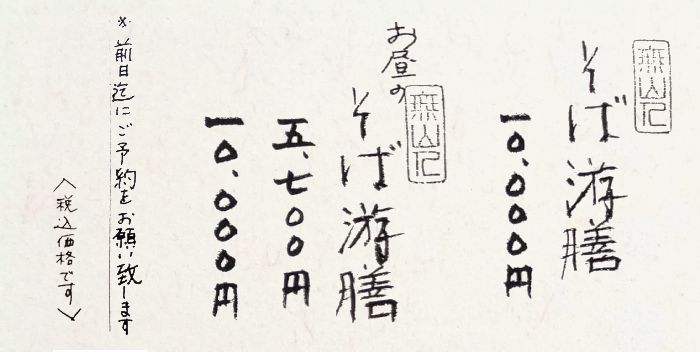 無山
そば游膳
一〇、〇〇〇円
お昼の
無山
そば游膳
五、七〇〇円
一〇、〇〇〇円
※前日迄にご予約をお願い致します
〈税込価格です〉